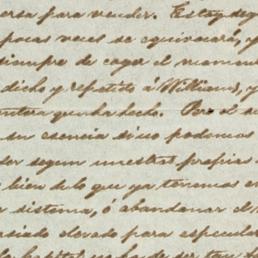 ersa para vender. Estoy seg
pocas veces se equivocará, y
siempre de coger el momen
dicho y repetido á Williams, y
ntura que ha hecho. Pero el s
su esencia si no podemos
der segun nuestras propias
bien de lo que ya tenemos en
r sistema, ó abandonar el
siado elevado para especular